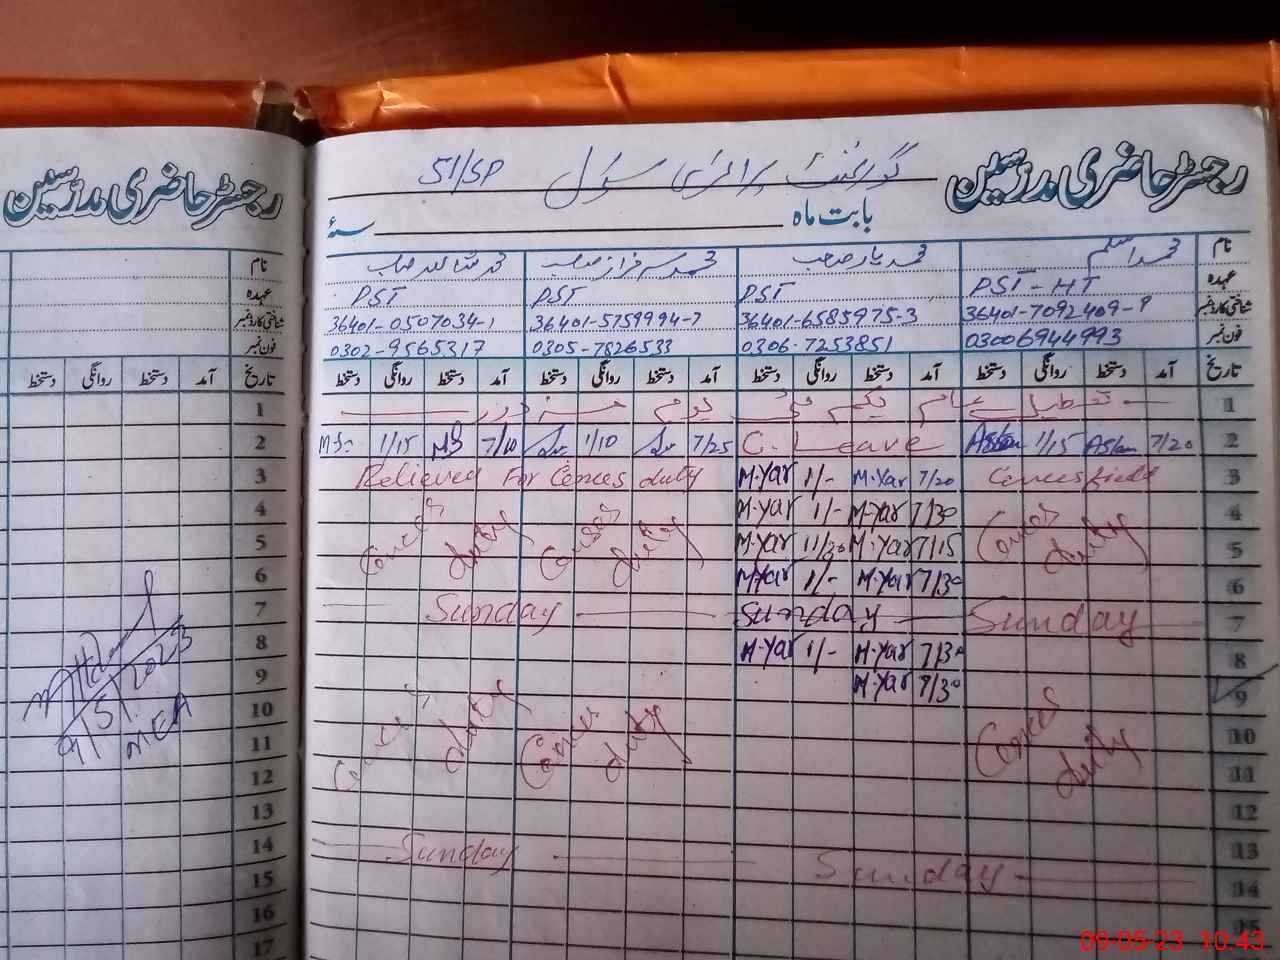 رجسٹر حاضری مدرسین
گورنمنٹ پرائمری سکول 51/SP
رجسٹر حاضری مدرسین
بابت ماہ سنۂ
نام محمد اسلم محمد یار صاحب محمد سرفراز صاحب
عہدہ PST-HT PST PST PST
شناختی کارڈ نمبر 36401-7092409-9 36401-6585975-3 36401-5759994-7 36401-0507034-1
فون نمبر 03006944993 0306-7253851 0305-7826533 0302-9565317
تاریخ آمد دستخط روانگی دستخط آمد دستخط روانگی دستخط آمد دستخط روانگی دستخط آمد دستخط روانگی دستخط
1 تعطیل یکم مئی یوم مزدور
M.S 1/15 MS 7/10 1/10 7/25 C. Leave Aslam 1/15 Aslam 7/20 2
Relieved For Cences duty M.Yar 1/- M.Yar 7/20 Cences field 3
M.Yar 1/- M.Yar 7/30 4
Cences duty Censes duty M.Yar 11/30 M.Yar 7/15 Cences duty 5
M.Yar 1/- M.Yar 7/30 6
Sunday Sunday Sunday 7
M.Yar 1/- M.Yar 7/30 8
M.Yar 7/30 9
Cences duty Cences duty Cences duty 10
11
12
Sunday 13
Sunday 14
15
نام
عہدہ
شناختی کارڈ نمبر
فون نمبر
تاریخ آمد دستخط روانگی دستخط
1
2
3
4
5
6
7
8
9
10
11
12
13
14
15
16
17
9/5/2023
MEA
09-05-23 10:43